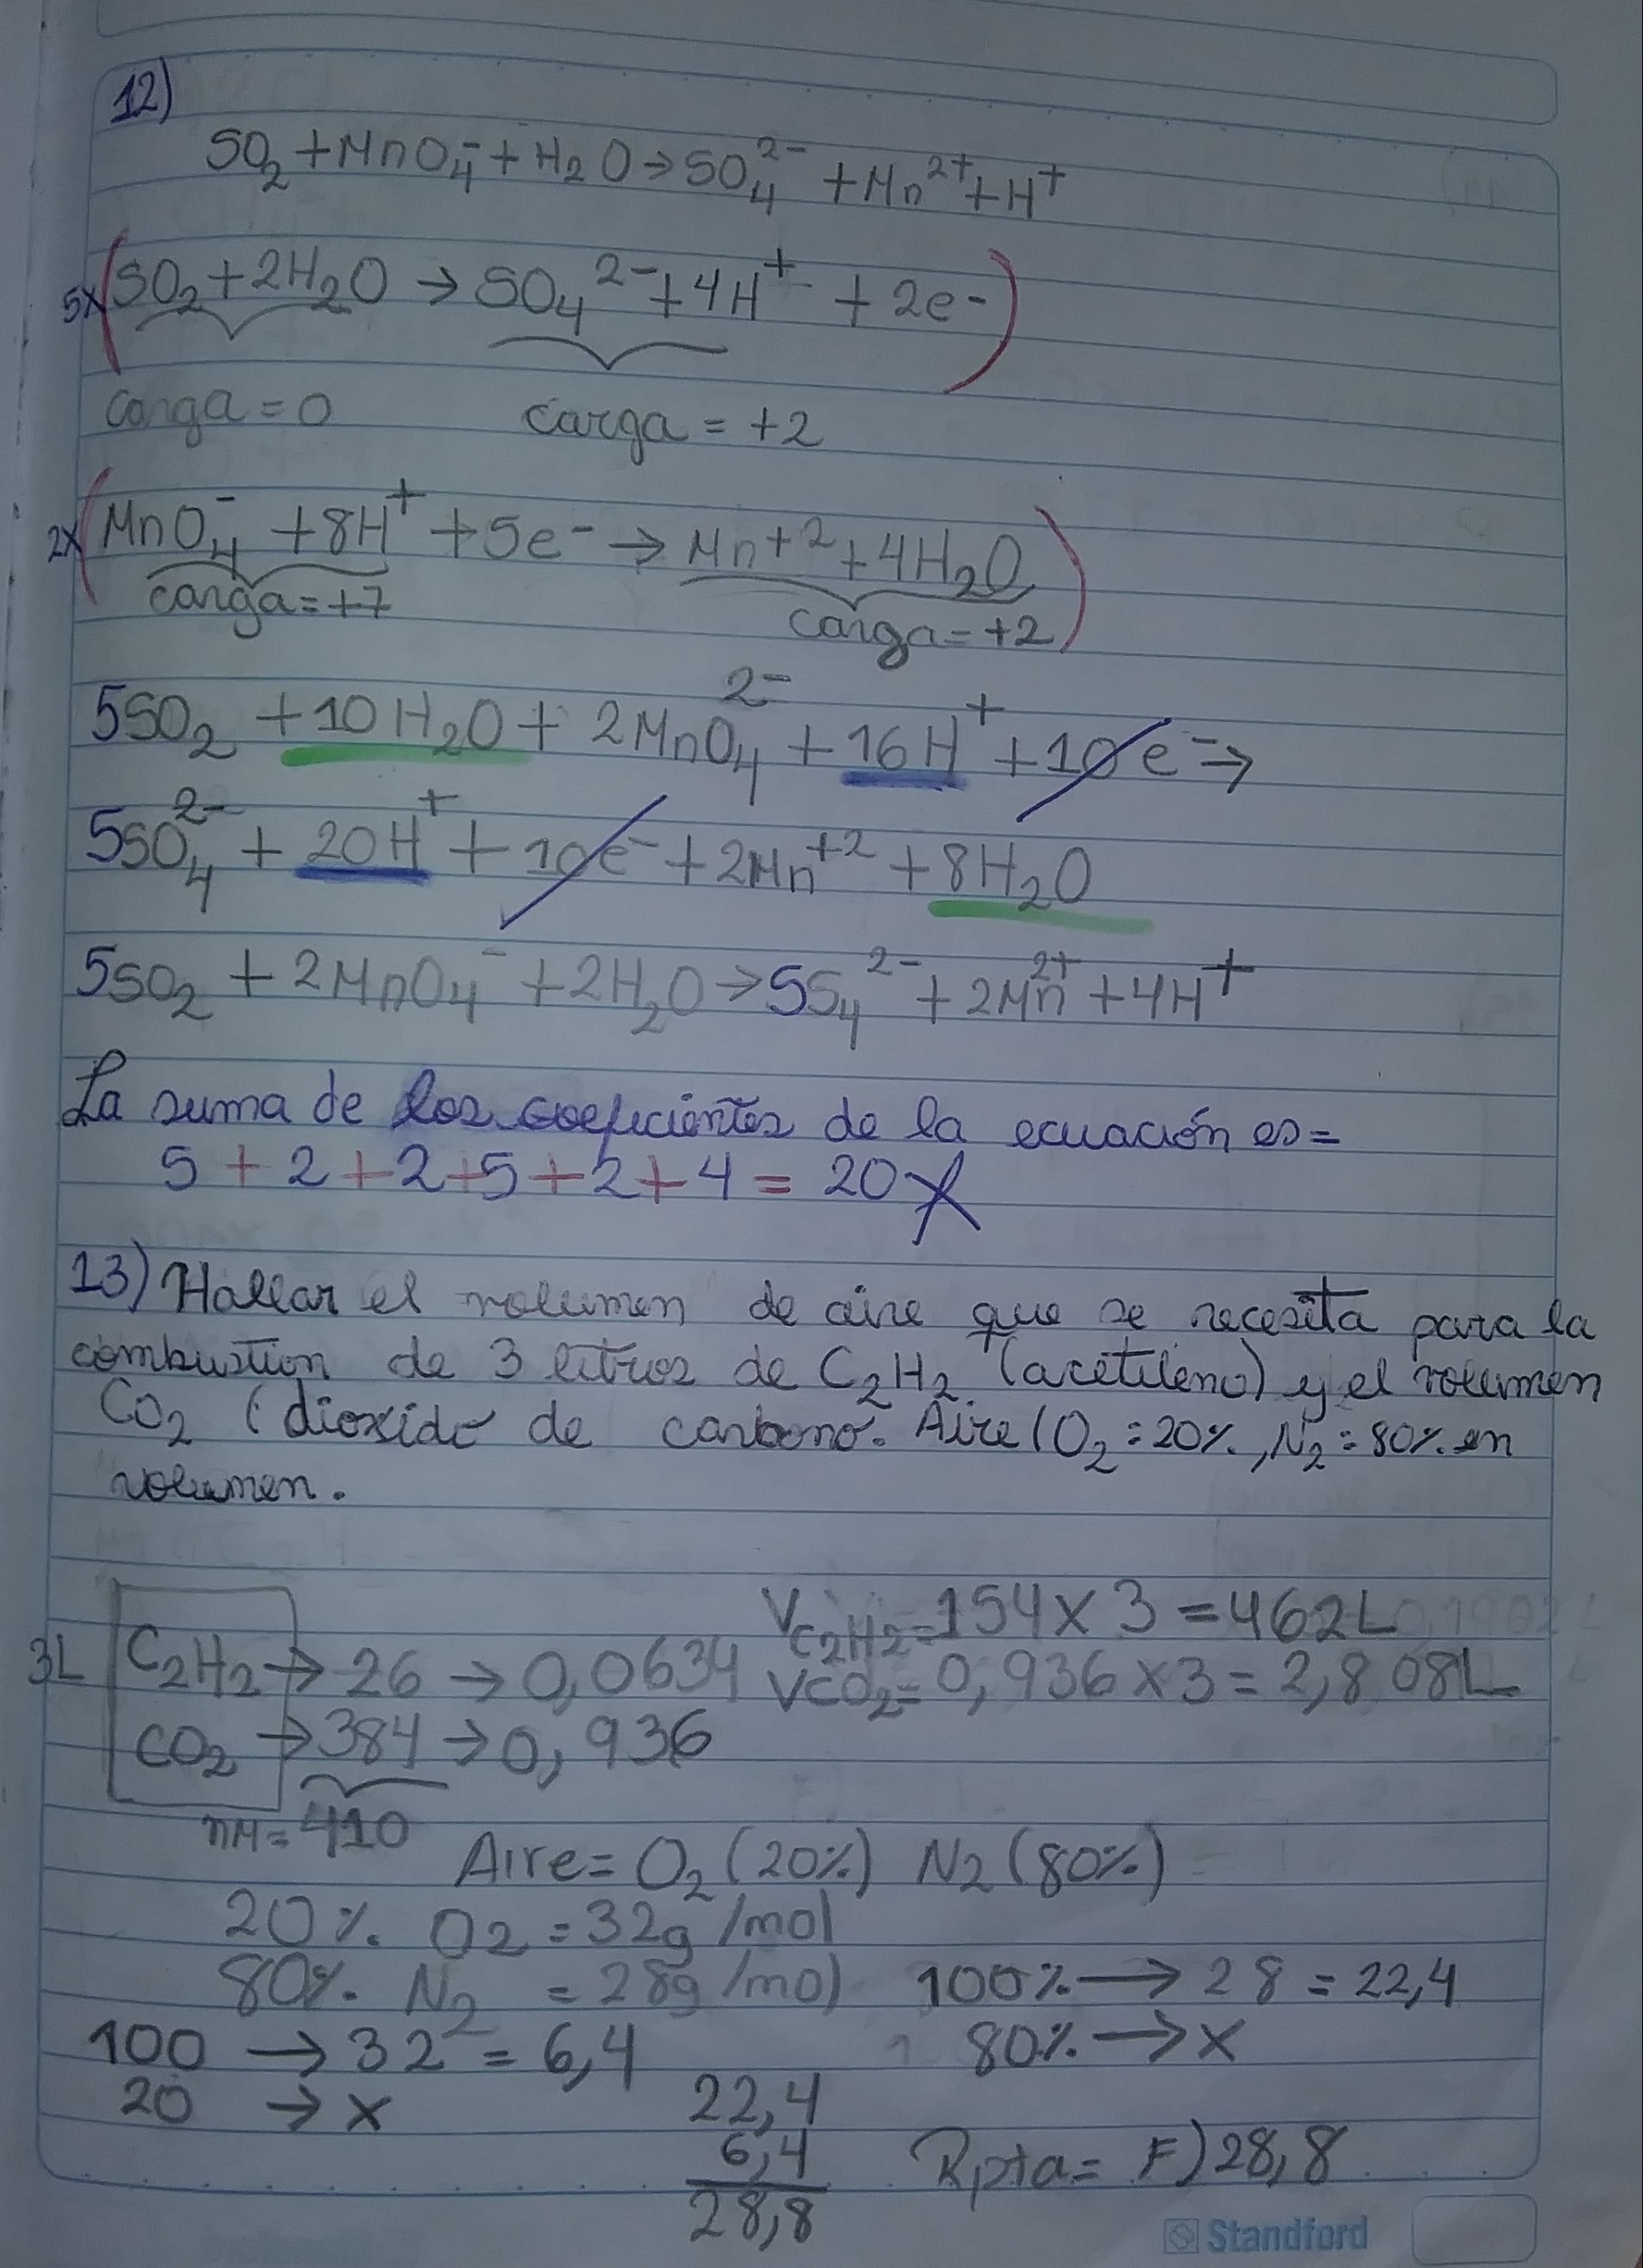 12)
SO₂ + MnO₄⁻ + H₂O → SO₄²⁻ + Mn²⁺ + H⁺
5x (SO₂ + 2H₂O → SO₄²⁻ + 4H⁺ + 2e-)
carga = 0 carga = +2
2x (MnO₄⁻ + 8H⁺ + 5e⁻ → Mn⁺² + 4H₂O)
carga = +7 carga = +2
5SO₂ + 10H₂O + 2MnO₄²⁻ + 16H⁺ + 10e⁻ →
5SO₄²⁻ + 20H⁺ + 10e⁻ + 2Mn⁺² + 8H₂O
5SO₂ + 2MnO₄⁻ + 2H₂O → 5S₄²⁻ + 2Mn²⁺ + 4H⁺
La suma de los coeficientes de la ecuación es =
5 + 2 + 2 + 5 + 2 + 4 = 20
13) Hallar el volumen de aire que se necesita para la
combustion de 3 litros de C₂H₂ (acetileno) y el volumen
CO₂ (dioxido de carbono. Aire (O₂ = 20%, N₂ = 80% en
volumen.
V C₂H₂ = 154 x 3 = 462L
3L C₂H₂ → 26 → 0,0634 VCO₂ = 0,936 x 3 = 2,808L
CO₂ → 384 → 0,936
nM = 410
Aire = O₂ (20%) N₂ (80%)
20% O₂ = 32g/mol
80% N₂ = 28g/mol 100% → 28 = 22,4
100 → 32² = 6,4 80% → x
20 → x 22,4
6,4 Rpta = F) 28,8
28,8
Standford